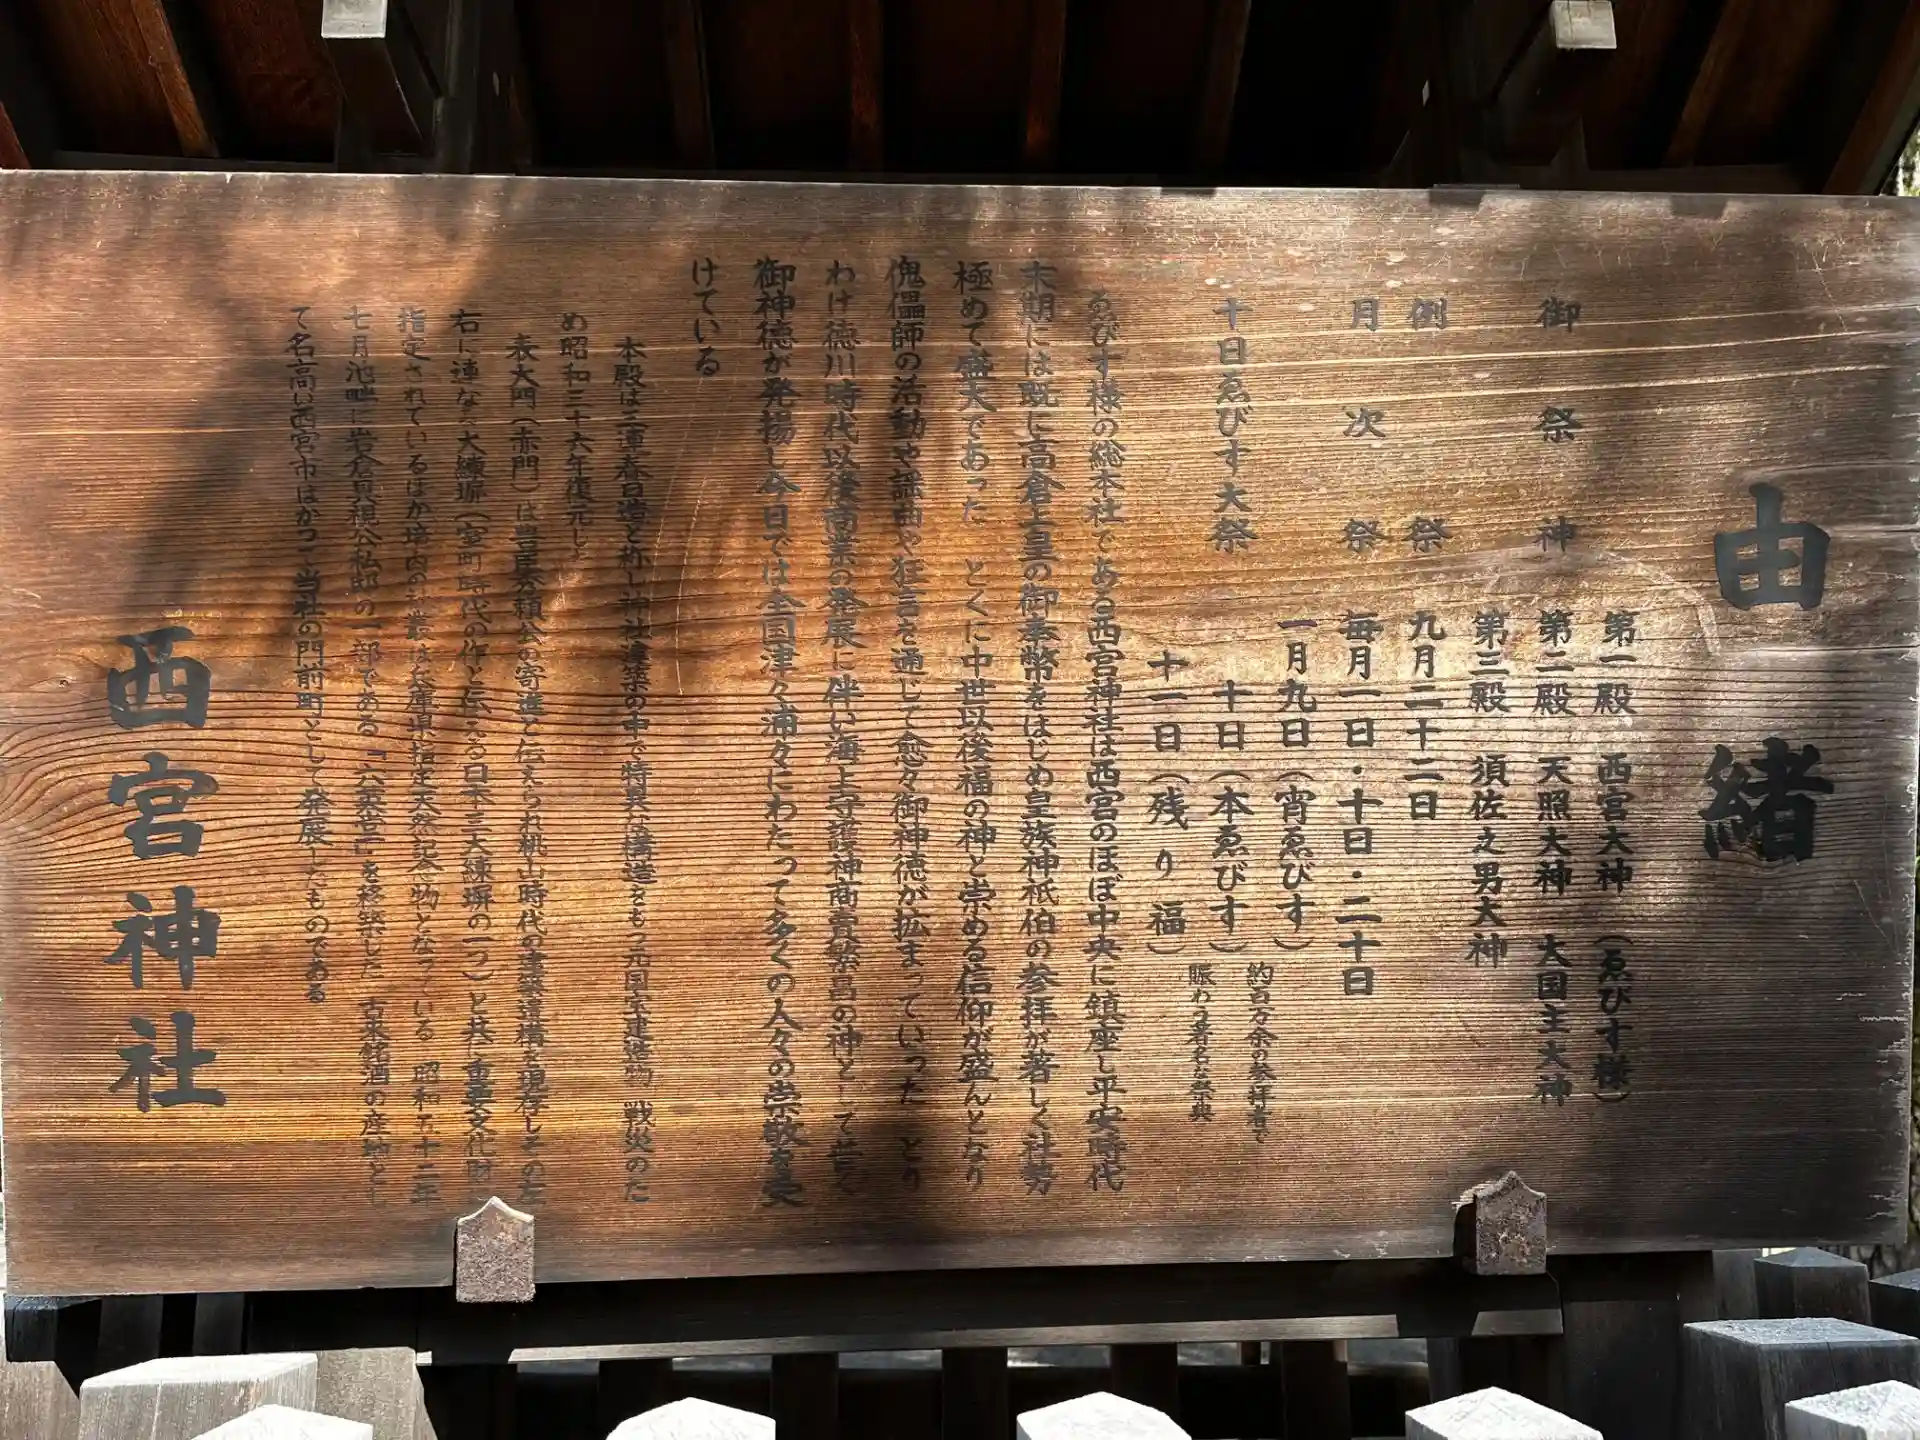 由緒
御祭神 第一殿 西宮大神(ゑびす様)
第二殿 天照大神 大国主大神
第三殿 須佐之男大神
例祭 九月二十二日
月次祭 毎月一日・十日・二十日
十日ゑびす大祭 一月九日(宵ゑびす)
十日(本ゑびす)
十一日(残り福)
約百万余の参拝者で
賑わう著名な祭典
ゑびす様の総本社である西宮神社は西宮のほぼ中央に鎮座し平安時代
末期には既に高倉上皇の御奉幣をはじめ皇族神祇伯の参拝が著しく社勢
極めて盛大であった とくに中世以後福の神と崇める信仰が盛んとなり
傀儡師の活動や謡曲や狂言を通じて愈々御神徳が拡まっていった とり
わけ徳川時代以後商業の発展に伴い海上守護神商売繁昌の神として普く
御神徳が発揚し今日では全国津々浦々にわたって多くの人々の崇敬を受
けている
本殿は三連春日造と称し神社建築の中で特異な構造をもつ元国宝建造物 戦災のた
め昭和三十六年復元した
表大門(赤門)は豊臣秀頼公の寄進と伝えられ桃山時代の建築遺構を現存しその左
右に連なる大練塀(室町時代の作と伝える日本三大練塀の一つ)と共に重要文化財に
指定されているほか境内の社叢は兵庫県指定天然記念物となっている 昭和五十二年
七月池畔に岩倉具視公私邸の一部である「六英堂」を移築した 古来銘酒の産地とし
て名高い西宮市はかつて当社の門前町として発展したものである
西宮神社